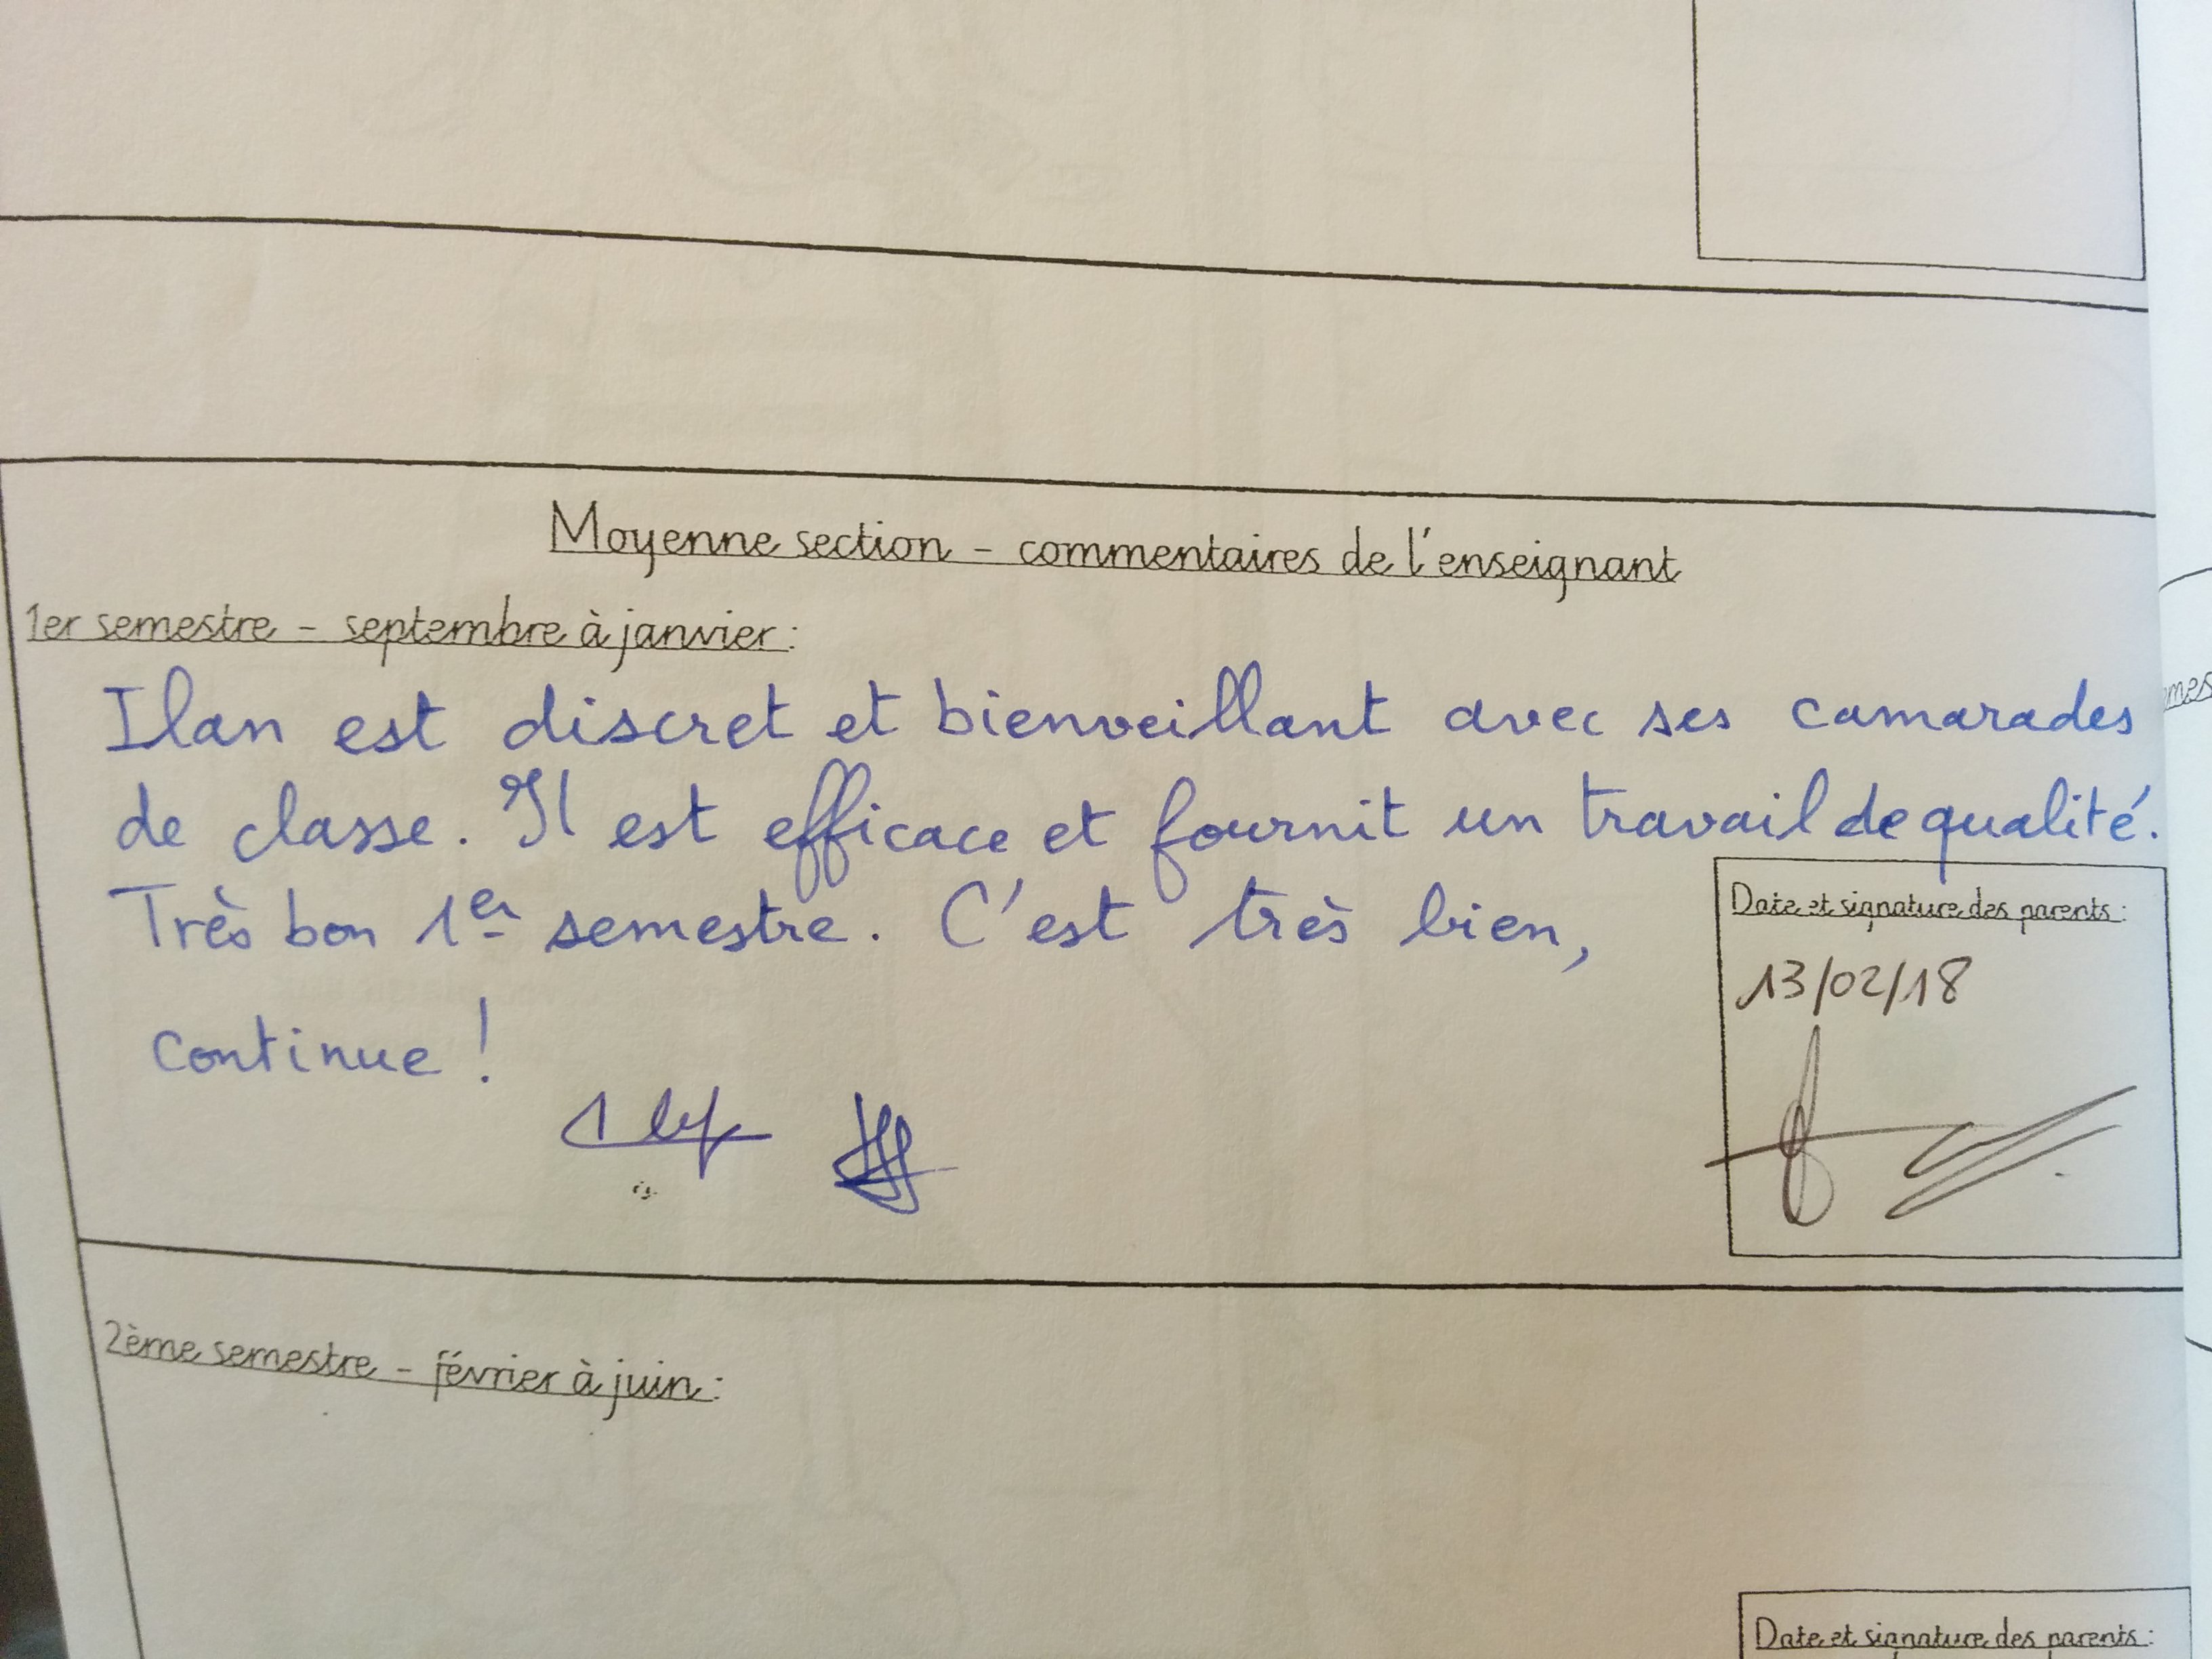 Moyenne section - commentaires de l'enseignant
1er semestre - septembre à janvier :
Ilan est discret et bienveillant avec ses camarades
de classe. Il est efficace et fournit un travail de qualité.
Très bon 1er semestre. C'est très bien,
continue !
Date et signature des parents :
13/02/18
2ème semestre - février à juin :
Date et signature des parents :